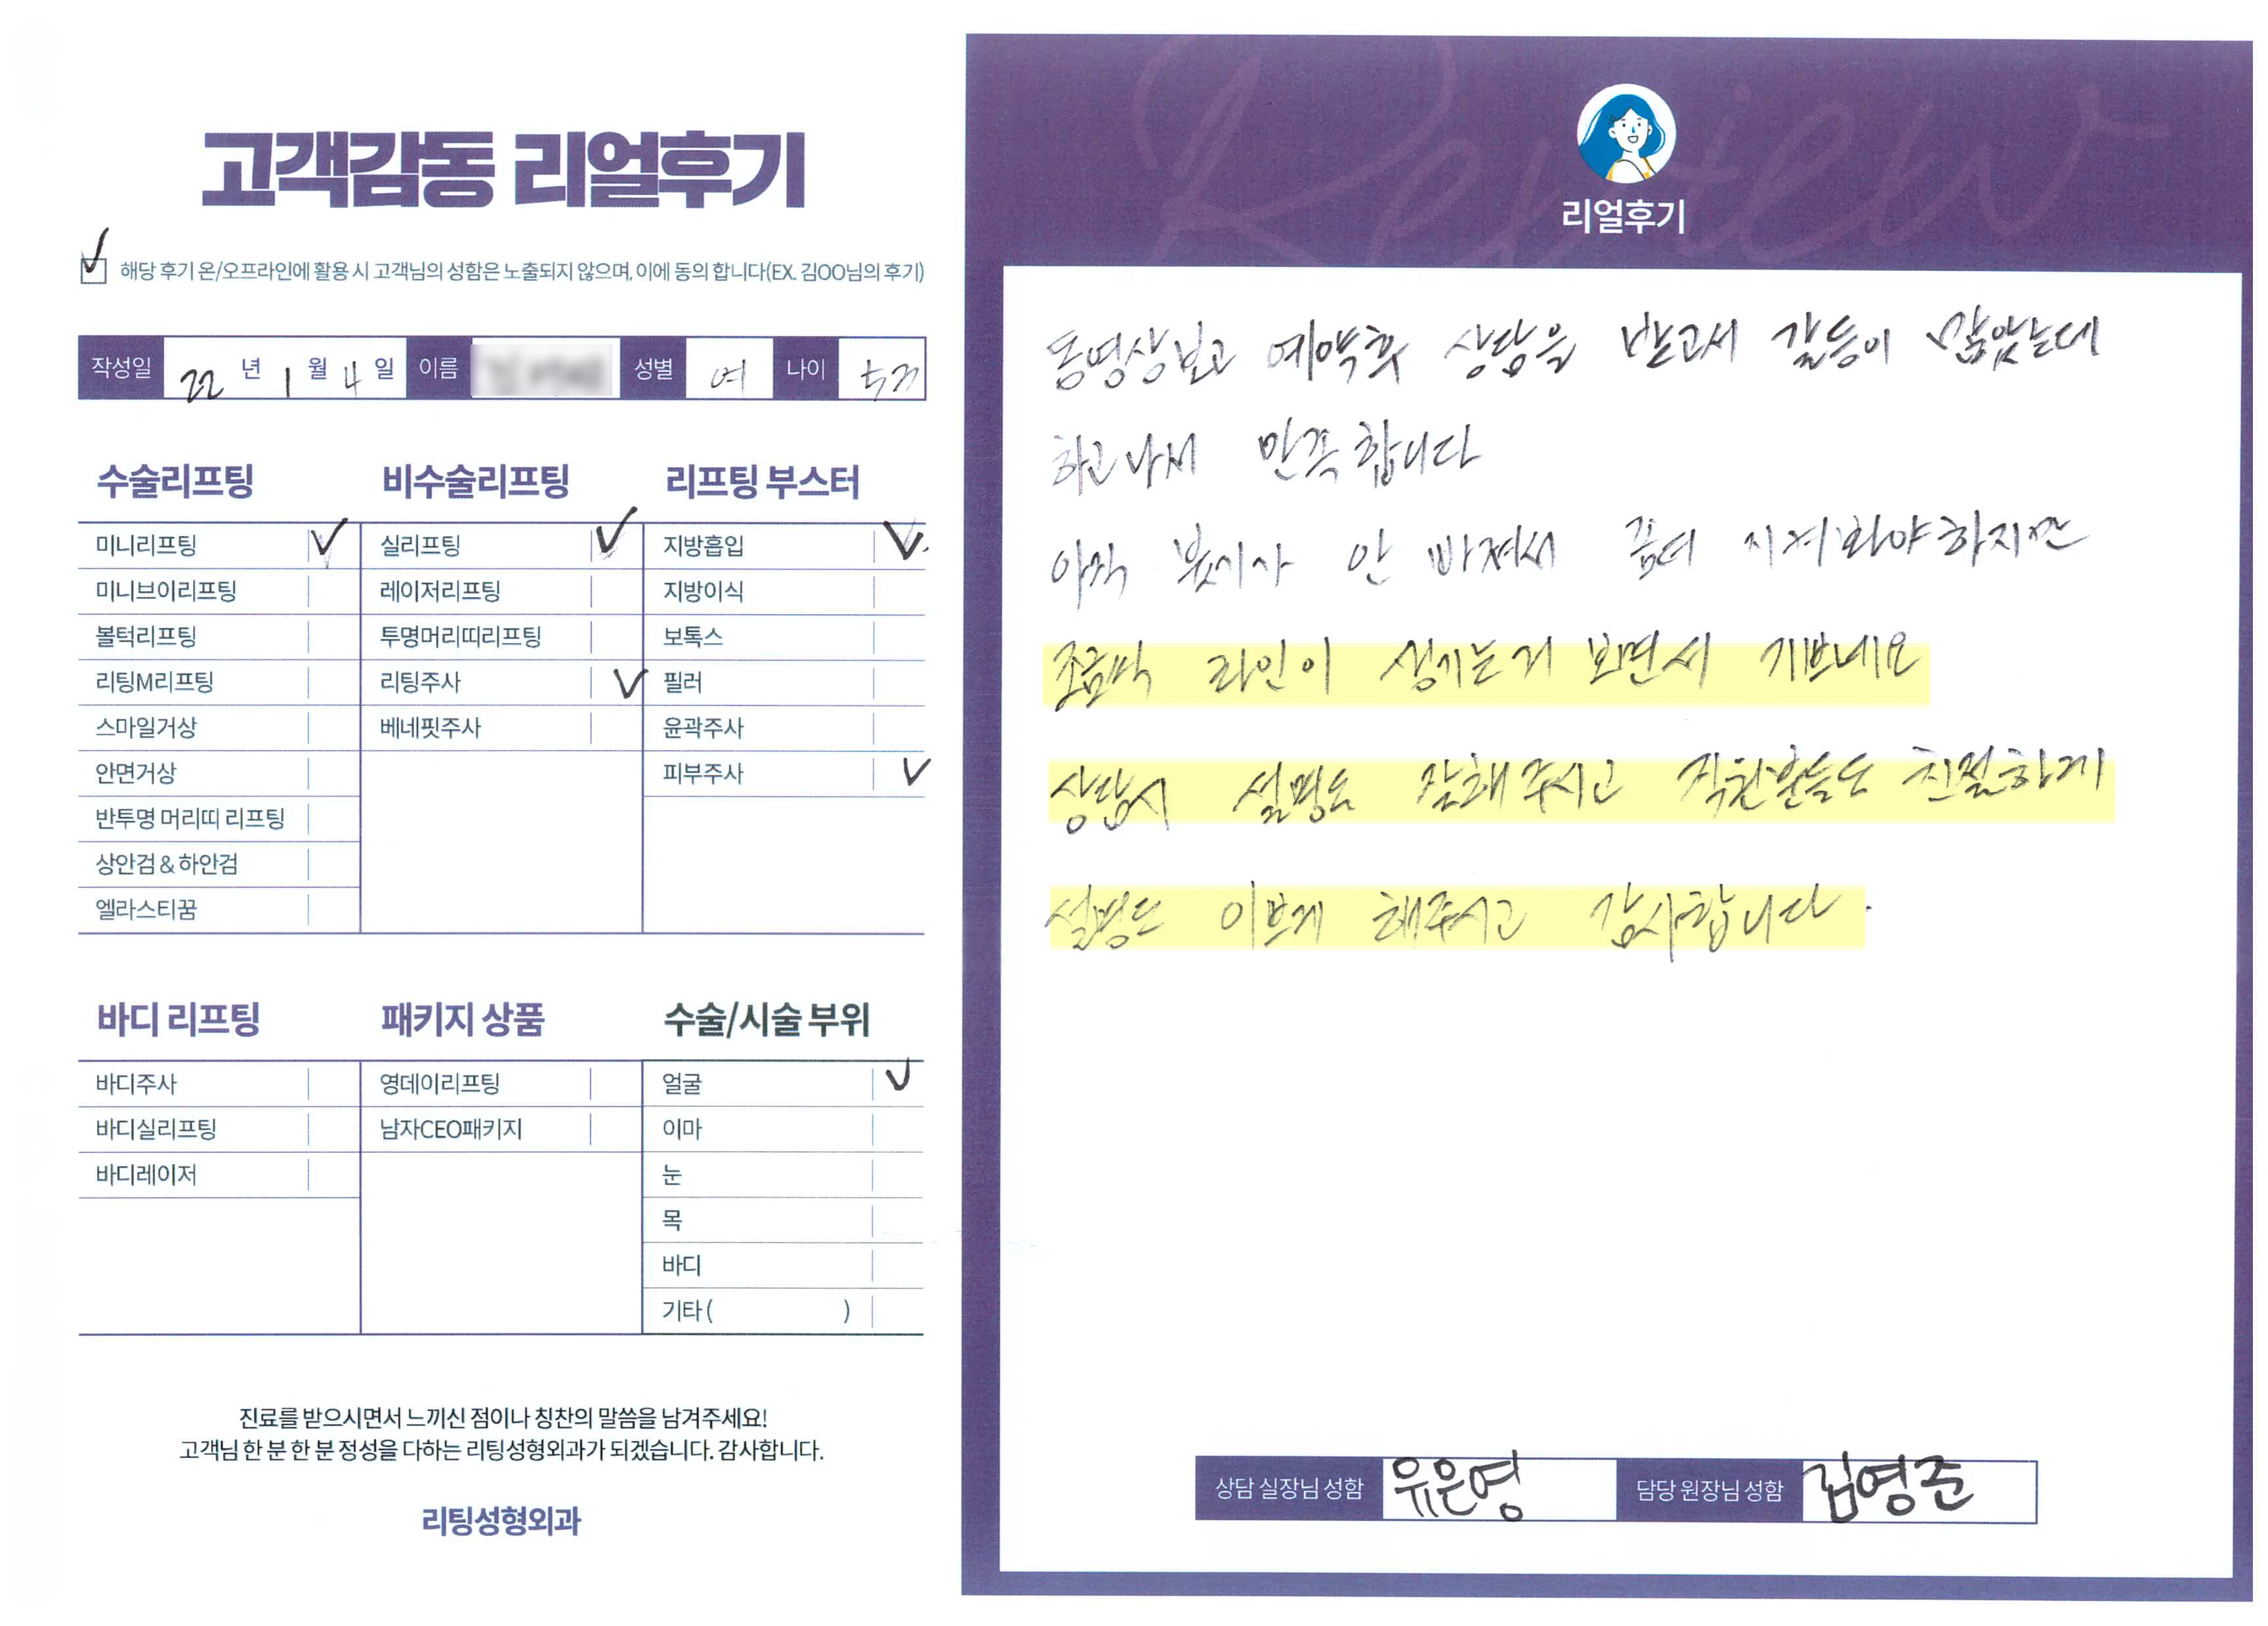 고객감동 리얼후기
해당 후기 온/오프라인에 활용 시 고객님의 성함은 노출되지 않으며, 이에 동의 합니다(EX. 김OO님의 후기)
작성일 22 년 1 월 4 일 이름 성별 여 나이
수술리프팅
미니리프팅
미니브이리프팅
볼턱리프팅
리팅M리프팅
스마일거상
안면거상
반투명 머리띠 리프팅
상안검 & 하안검
엘라스티꿈
비수술리프팅
실리프팅
레이저리프팅
투명머리띠리프팅
리팅주사
베네핏주사
리프팅 부스터
지방흡입
지방이식
보톡스
필러
윤곽주사
피부주사
바디 리프팅
바디주사
바디실리프팅
바디레이저
패키지 상품
영데이리프팅
남자CEO패키지
수술/시술 부위
얼굴
이마
눈
목
바디
기타 ( )
진료를 받으시면서 느끼신 점이나 칭찬의 말씀을 남겨주세요!
고객님 한 분 한 분 정성을 다하는 리팅성형외과가 되겠습니다. 감사합니다.
리팅성형외과
Review
리얼후기
동영상보고 예약후 상담을 받고서 갈등이 많았는데
하고나서 만족합니다
아직 붓기가 안 빠져서 좀더 지켜봐야하지만
조금씩 라인이 생기는거 보면서 기쁘네요
상담시 설명도 잘해주시고 직원분들도 친절하게
설명도 이쁘게 해주시고 감사합니다.
상담 실장님 성함 유은영 담당 원장님 성함 김영준